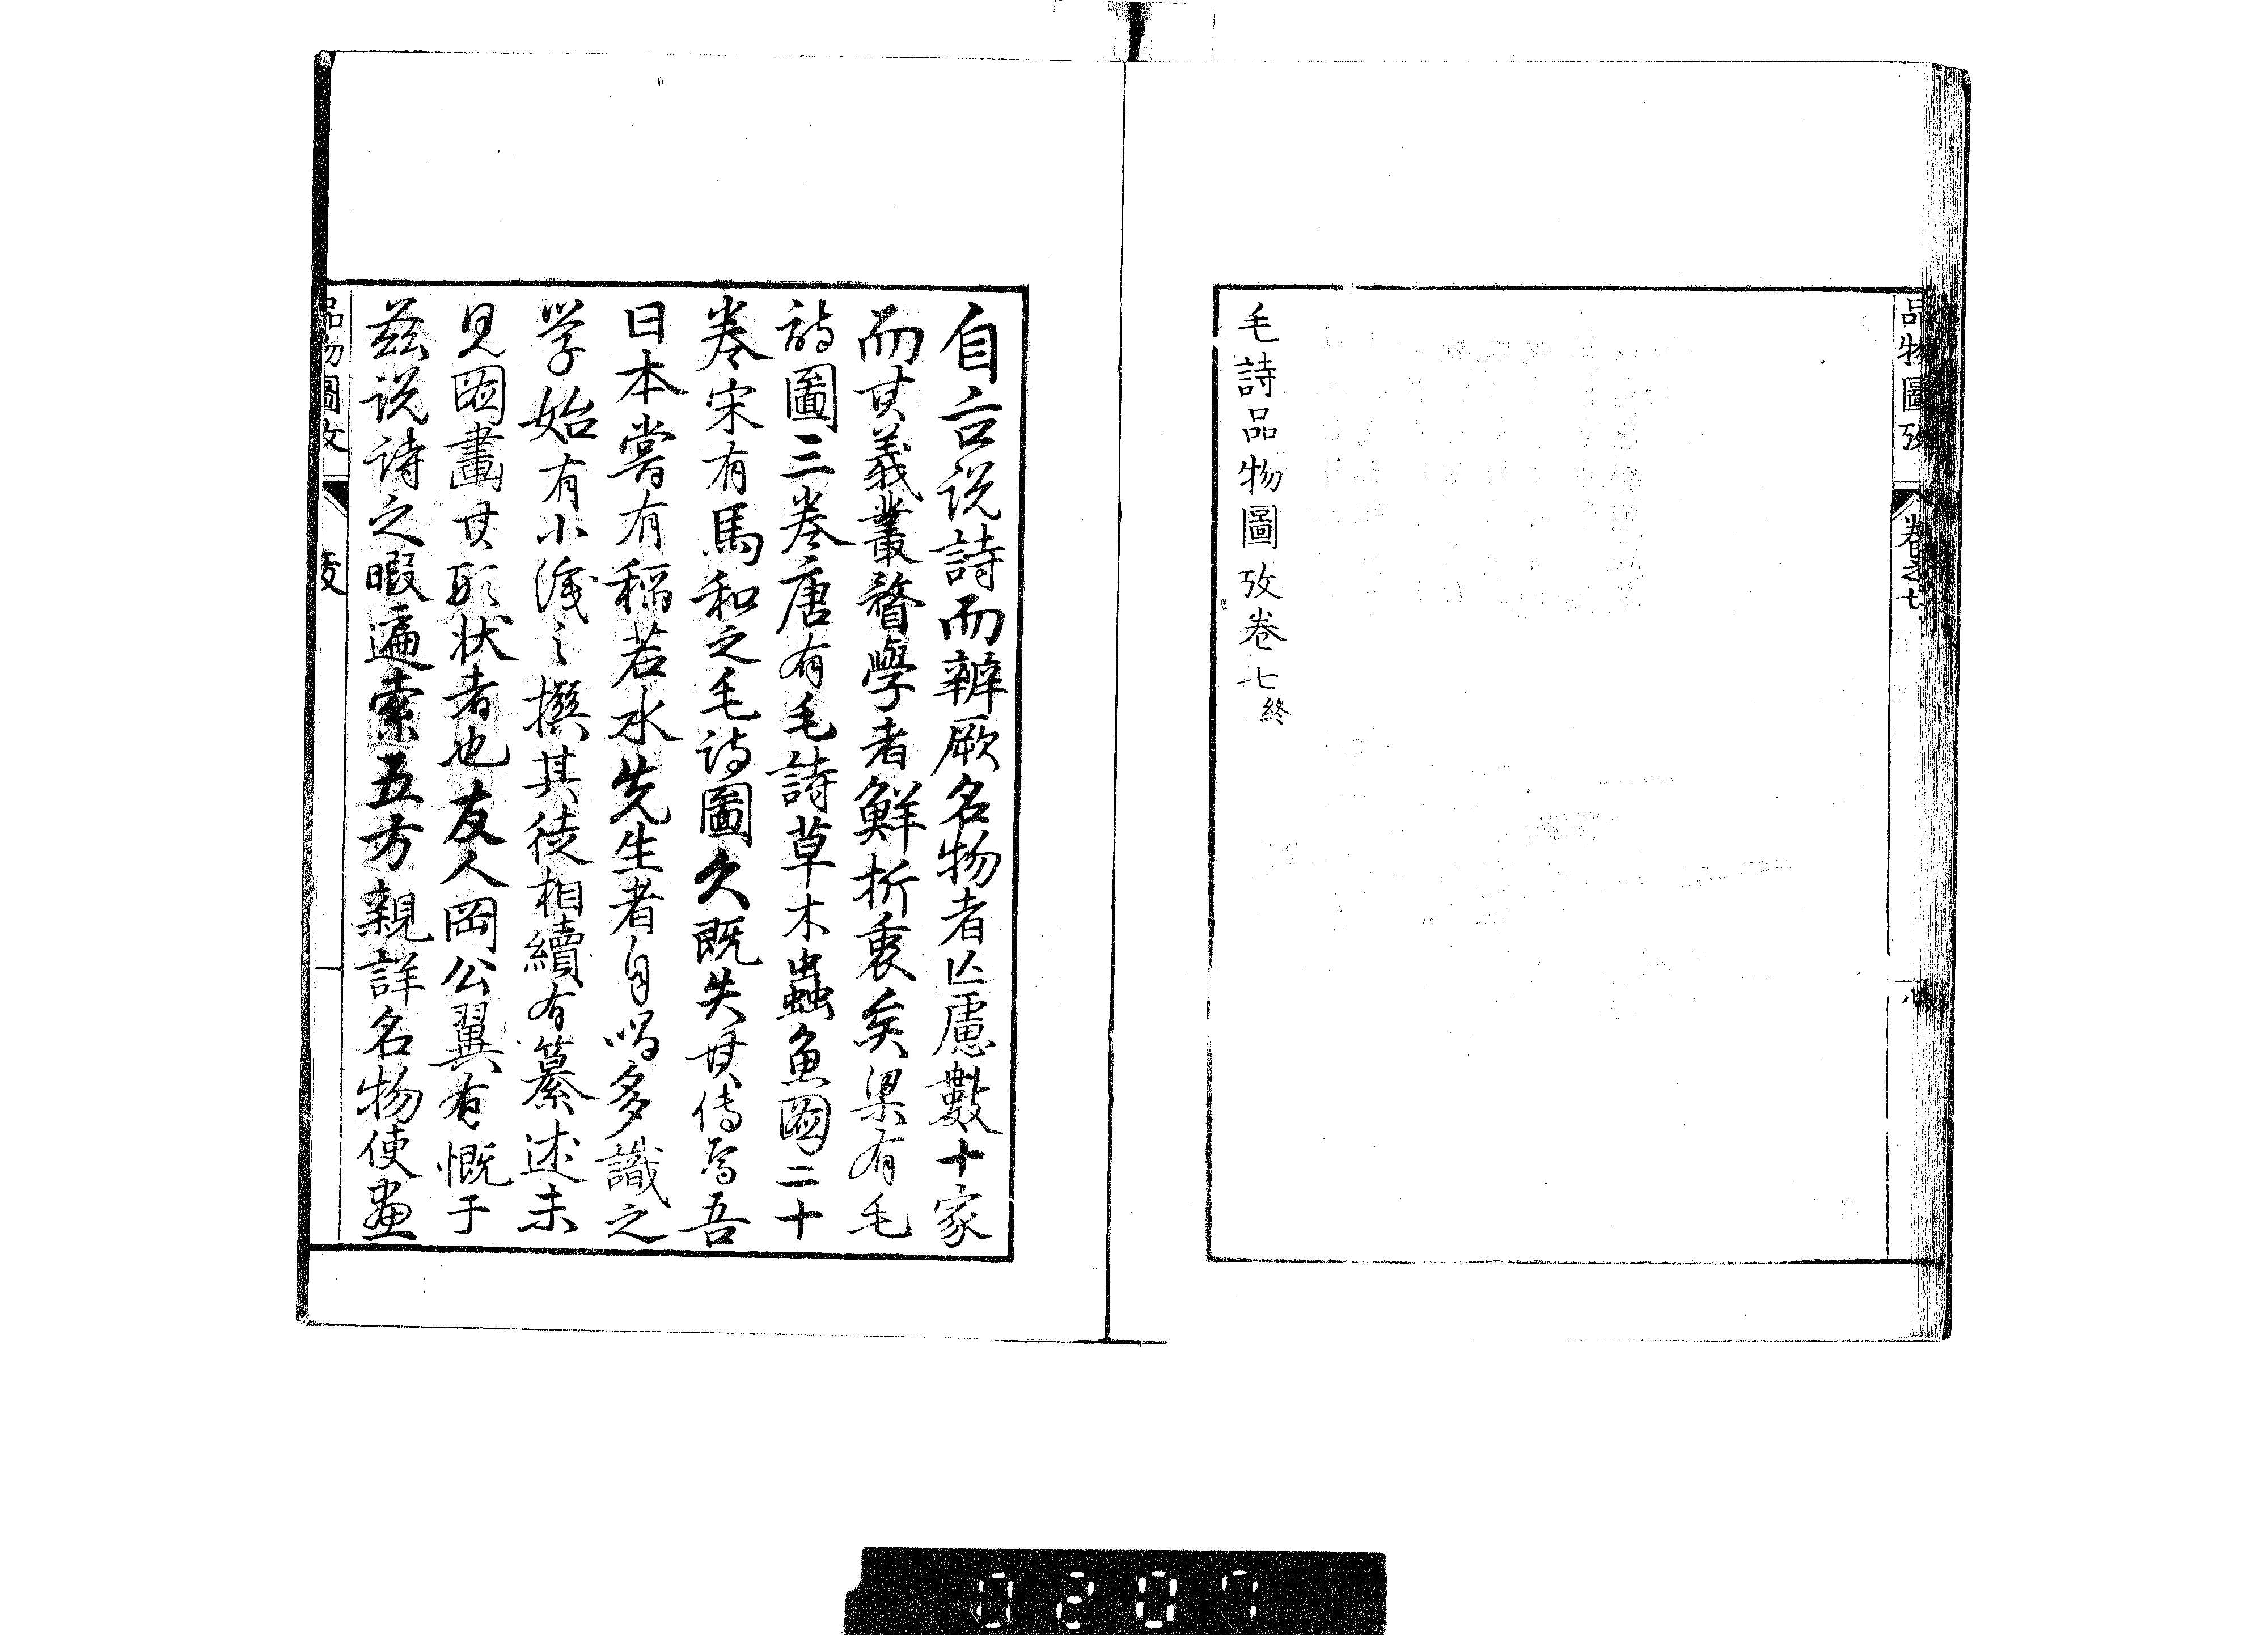 品物圖攷
卷之七
毛詩品物圖攷卷七終
自古说詩而辨厥名物者亡慮數十家
而其義叢瞀學者鮮折衷矣梁有毛
詩圖三卷唐有毛詩草木蟲魚圖二十
卷宋有馬和之毛詩圖久既失其傳焉吾
日本嘗有稲若水先生者自唱多識之
学始有小識之撰其徒相續有纂述未
見圖畫其形状者也友人岡公翼有慨于
茲说詩之暇遍索五方親詳名物使畫
品物圖攷
跋
一
0207